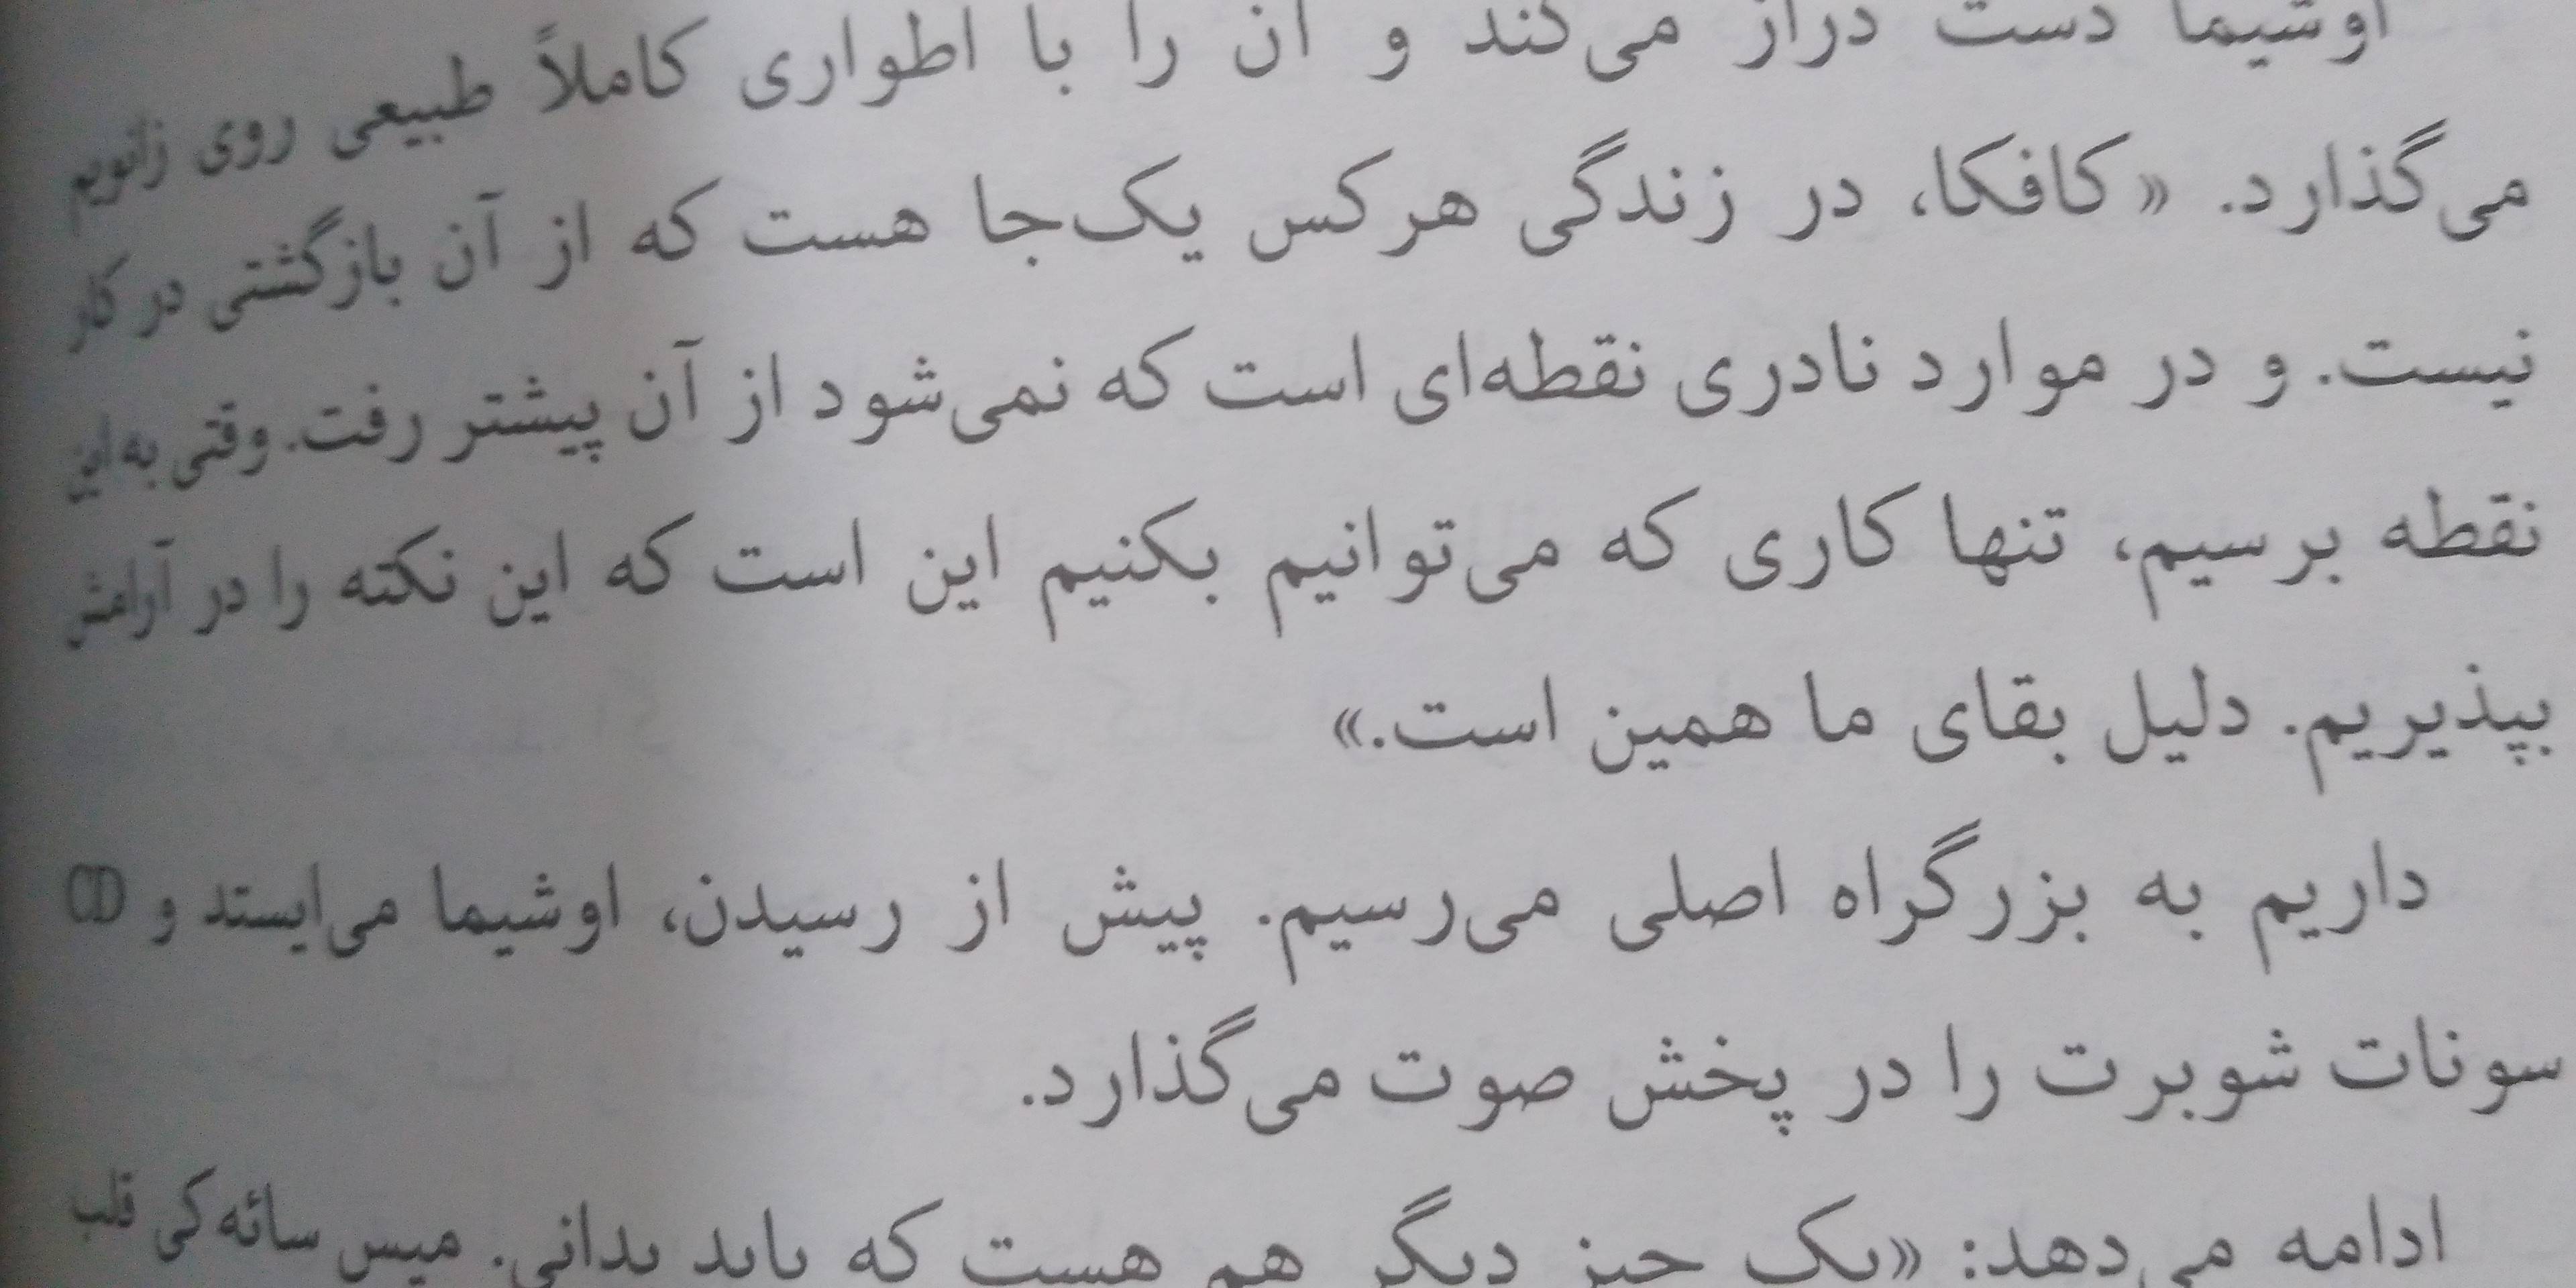 اوشیما دست دراز می‌کند و آن را با اطواری کاملاً طبیعی روی زانویم
می‌گذارد. «کافکا، در زندگی هرکس یک‌جا هست که از آن بازگشتی در کار
نیست. و در موارد نادری نقطه‌ای است که نمی‌شود از آن پیشتر رفت. وقتی به این
نقطه برسیم، تنها کاری که می‌توانیم بکنیم این است که این نکته را در آرامش
بپذیریم. دلیل بقای ما همین است.»
داریم به بزرگراه اصلی می‌رسیم. پیش از رسیدن، اوشیما می‌ایستد و CD
سونات شوبرت را در پخش صوت می‌گذارد.
ادامه می‌دهد: «یک چیز دیگر هم هست که باید بدانی. میس سائه‌کی قلب